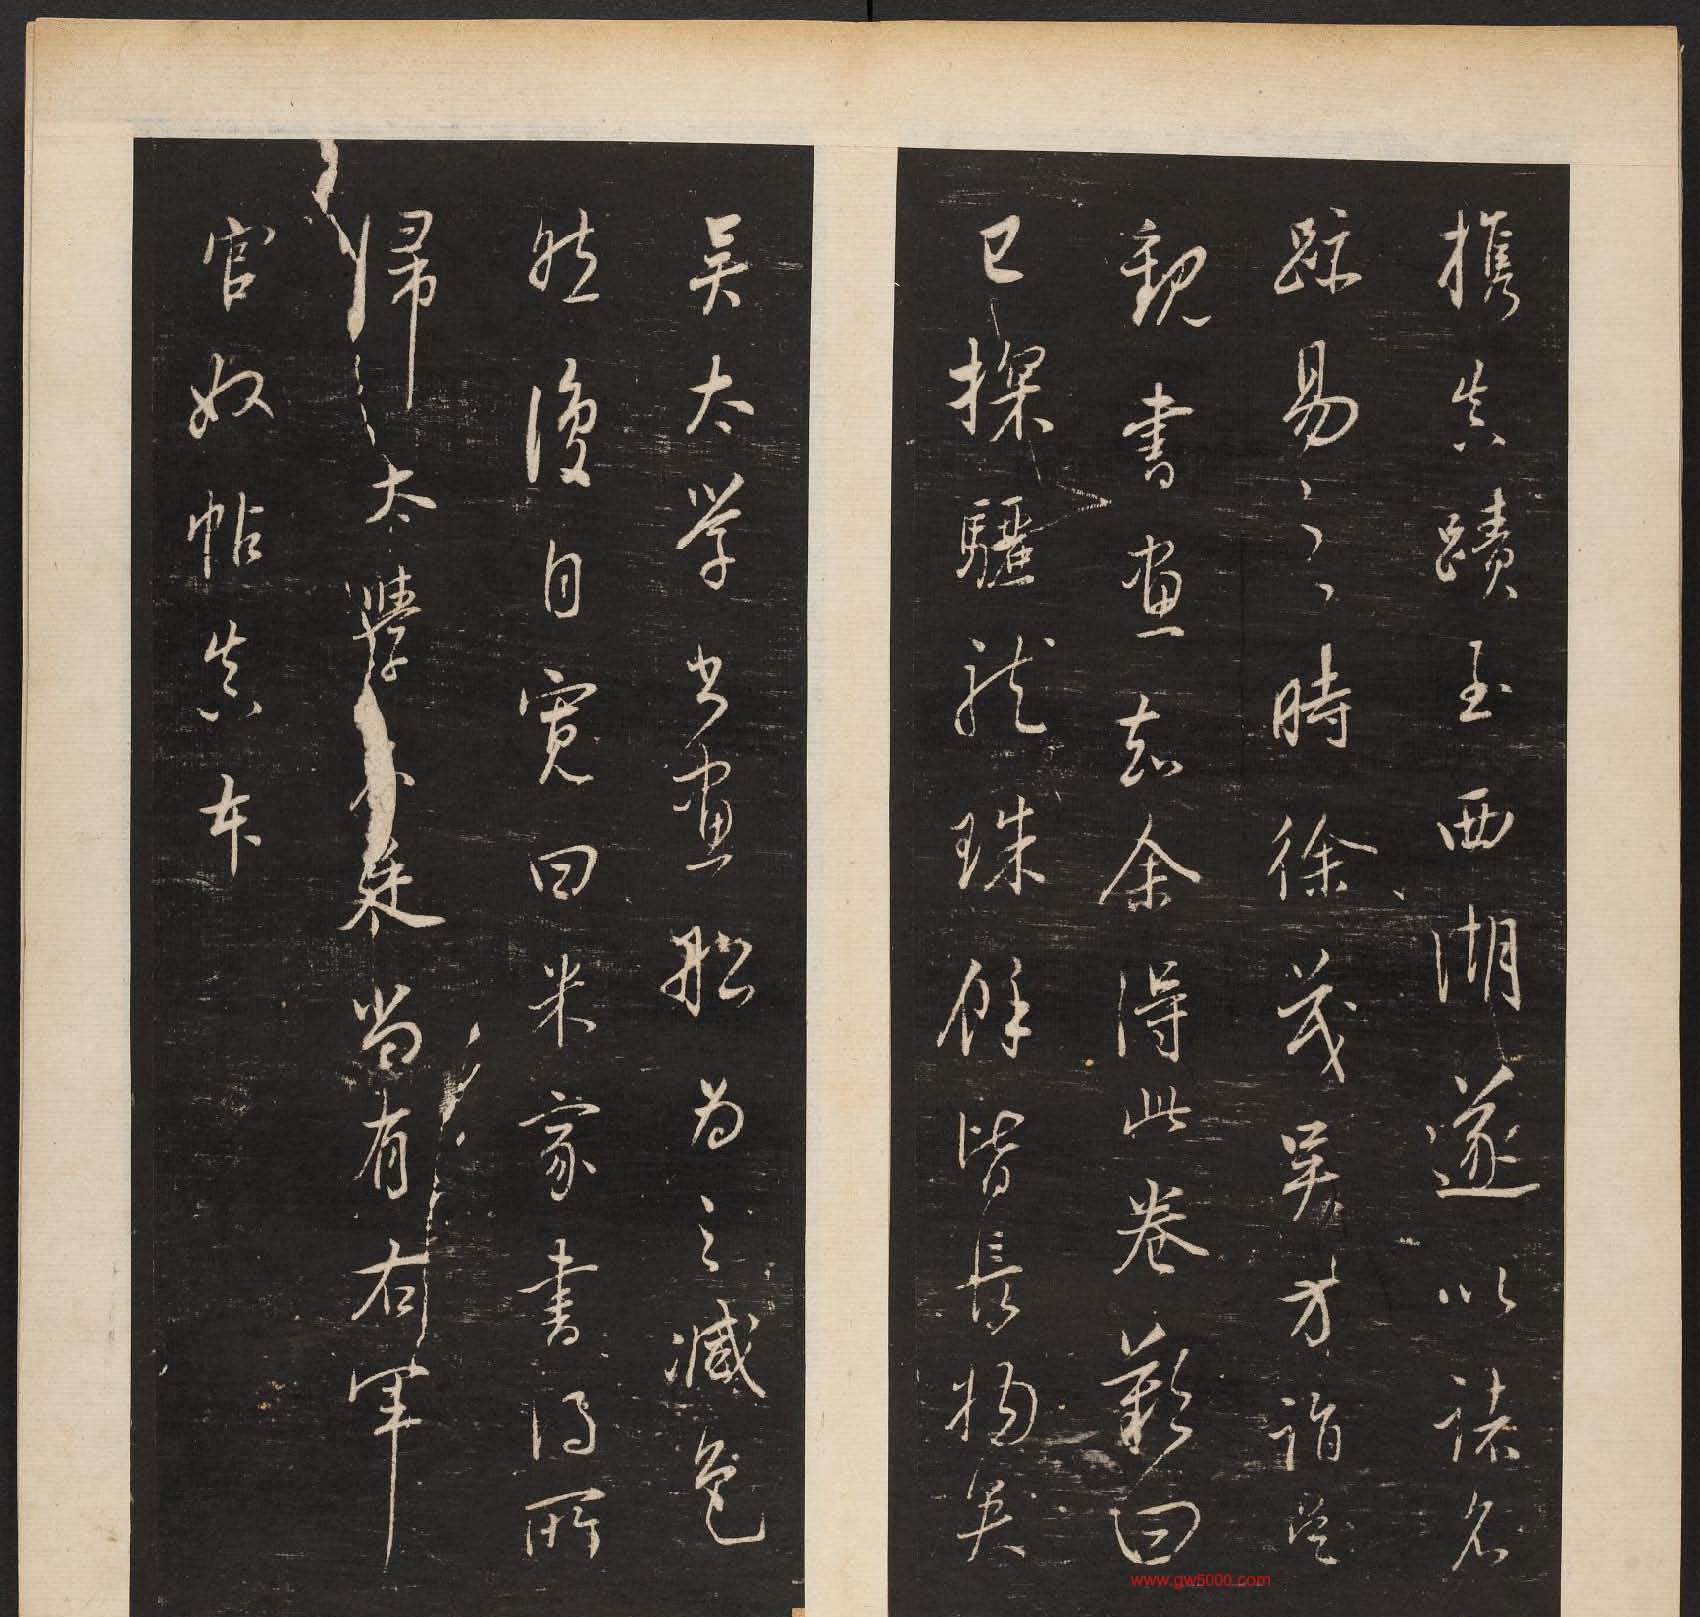 携真蹟至西湖遂以諸名
跡易之時徐茂吳方詣吳
觀書畫知余得此卷歎曰
已探驪龍珠餘皆長物矣
吳太学書畫船為之減色
然後自寬曰米家書得所
歸太學名廷尚有右軍
官奴帖真本
www.gw5000.com